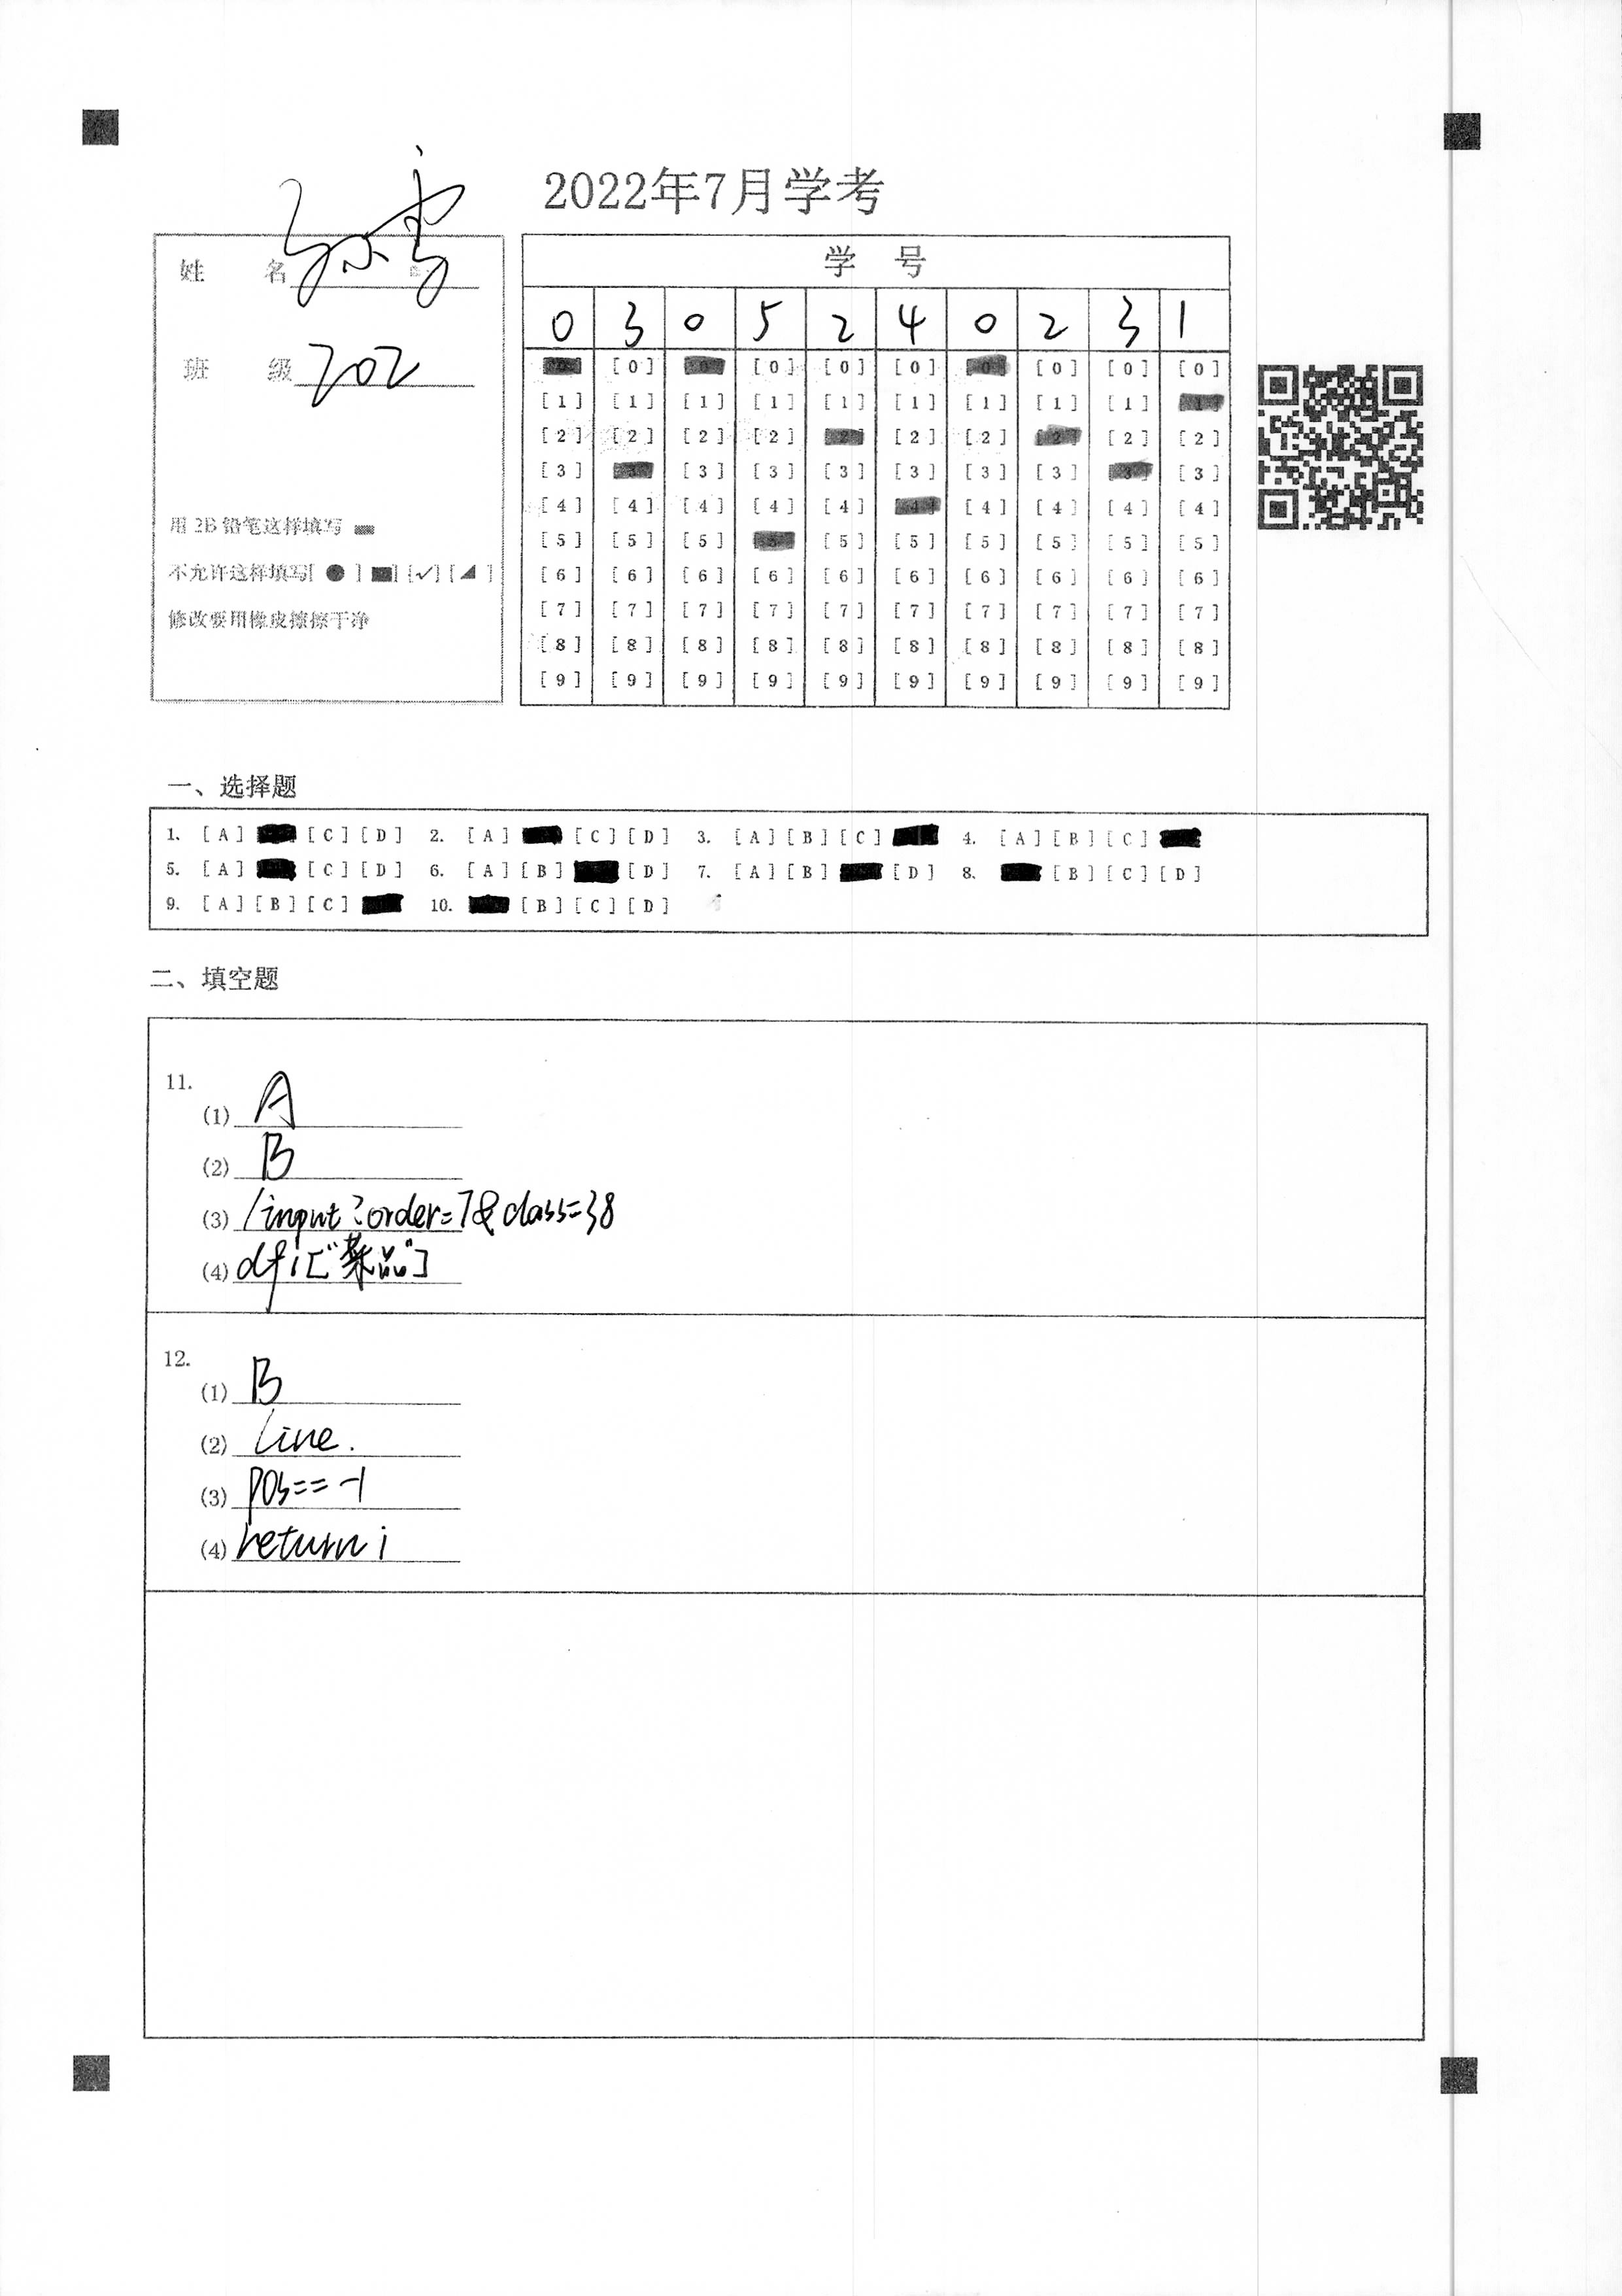 2022年7月学考
姓 名 孙雪
班 级 202
用 2B 铅笔这样填写
不允许这样填写[ ● ] [✓] [ ]
修改要用橡皮擦擦干净
学 号
0 3 0 5 2 4 0 2 3 1
[0] [0] [0] [0] [0] [0] [0]
[1] [1] [1] [1] [1] [1] [1] [1] [1]
[2] [2] [2] [2] [2] [2] [2] [2]
[3] [3] [3] [3] [3] [3] [3] [3]
[4] [4] [4] [4] [4] [4] [4] [4] [4]
[5] [5] [5] [5] [5] [5] [5] [5] [5]
[6] [6] [6] [6] [6] [6] [6] [6] [6] [6]
[7] [7] [7] [7] [7] [7] [7] [7] [7] [7]
[8] [8] [8] [8] [8] [8] [8] [8] [8] [8]
[9] [9] [9] [9] [9] [9] [9] [9] [9] [9]
一、选择题
1. [A] [C] [D] 2. [A] [C] [D] 3. [A] [B] [C] 4. [A] [B] [C]
5. [A] [C] [D] 6. [A] [B] [D] 7. [A] [B] [D] 8. [B] [C] [D]
9. [A] [B] [C] 10. [B] [C] [D]
二、填空题
11.
(1) A
(2) B
(3) /input?order=7&class=38
(4) df1["菜品"]
12.
(1) B
(2) line.
(3) pos==-1
(4) return i